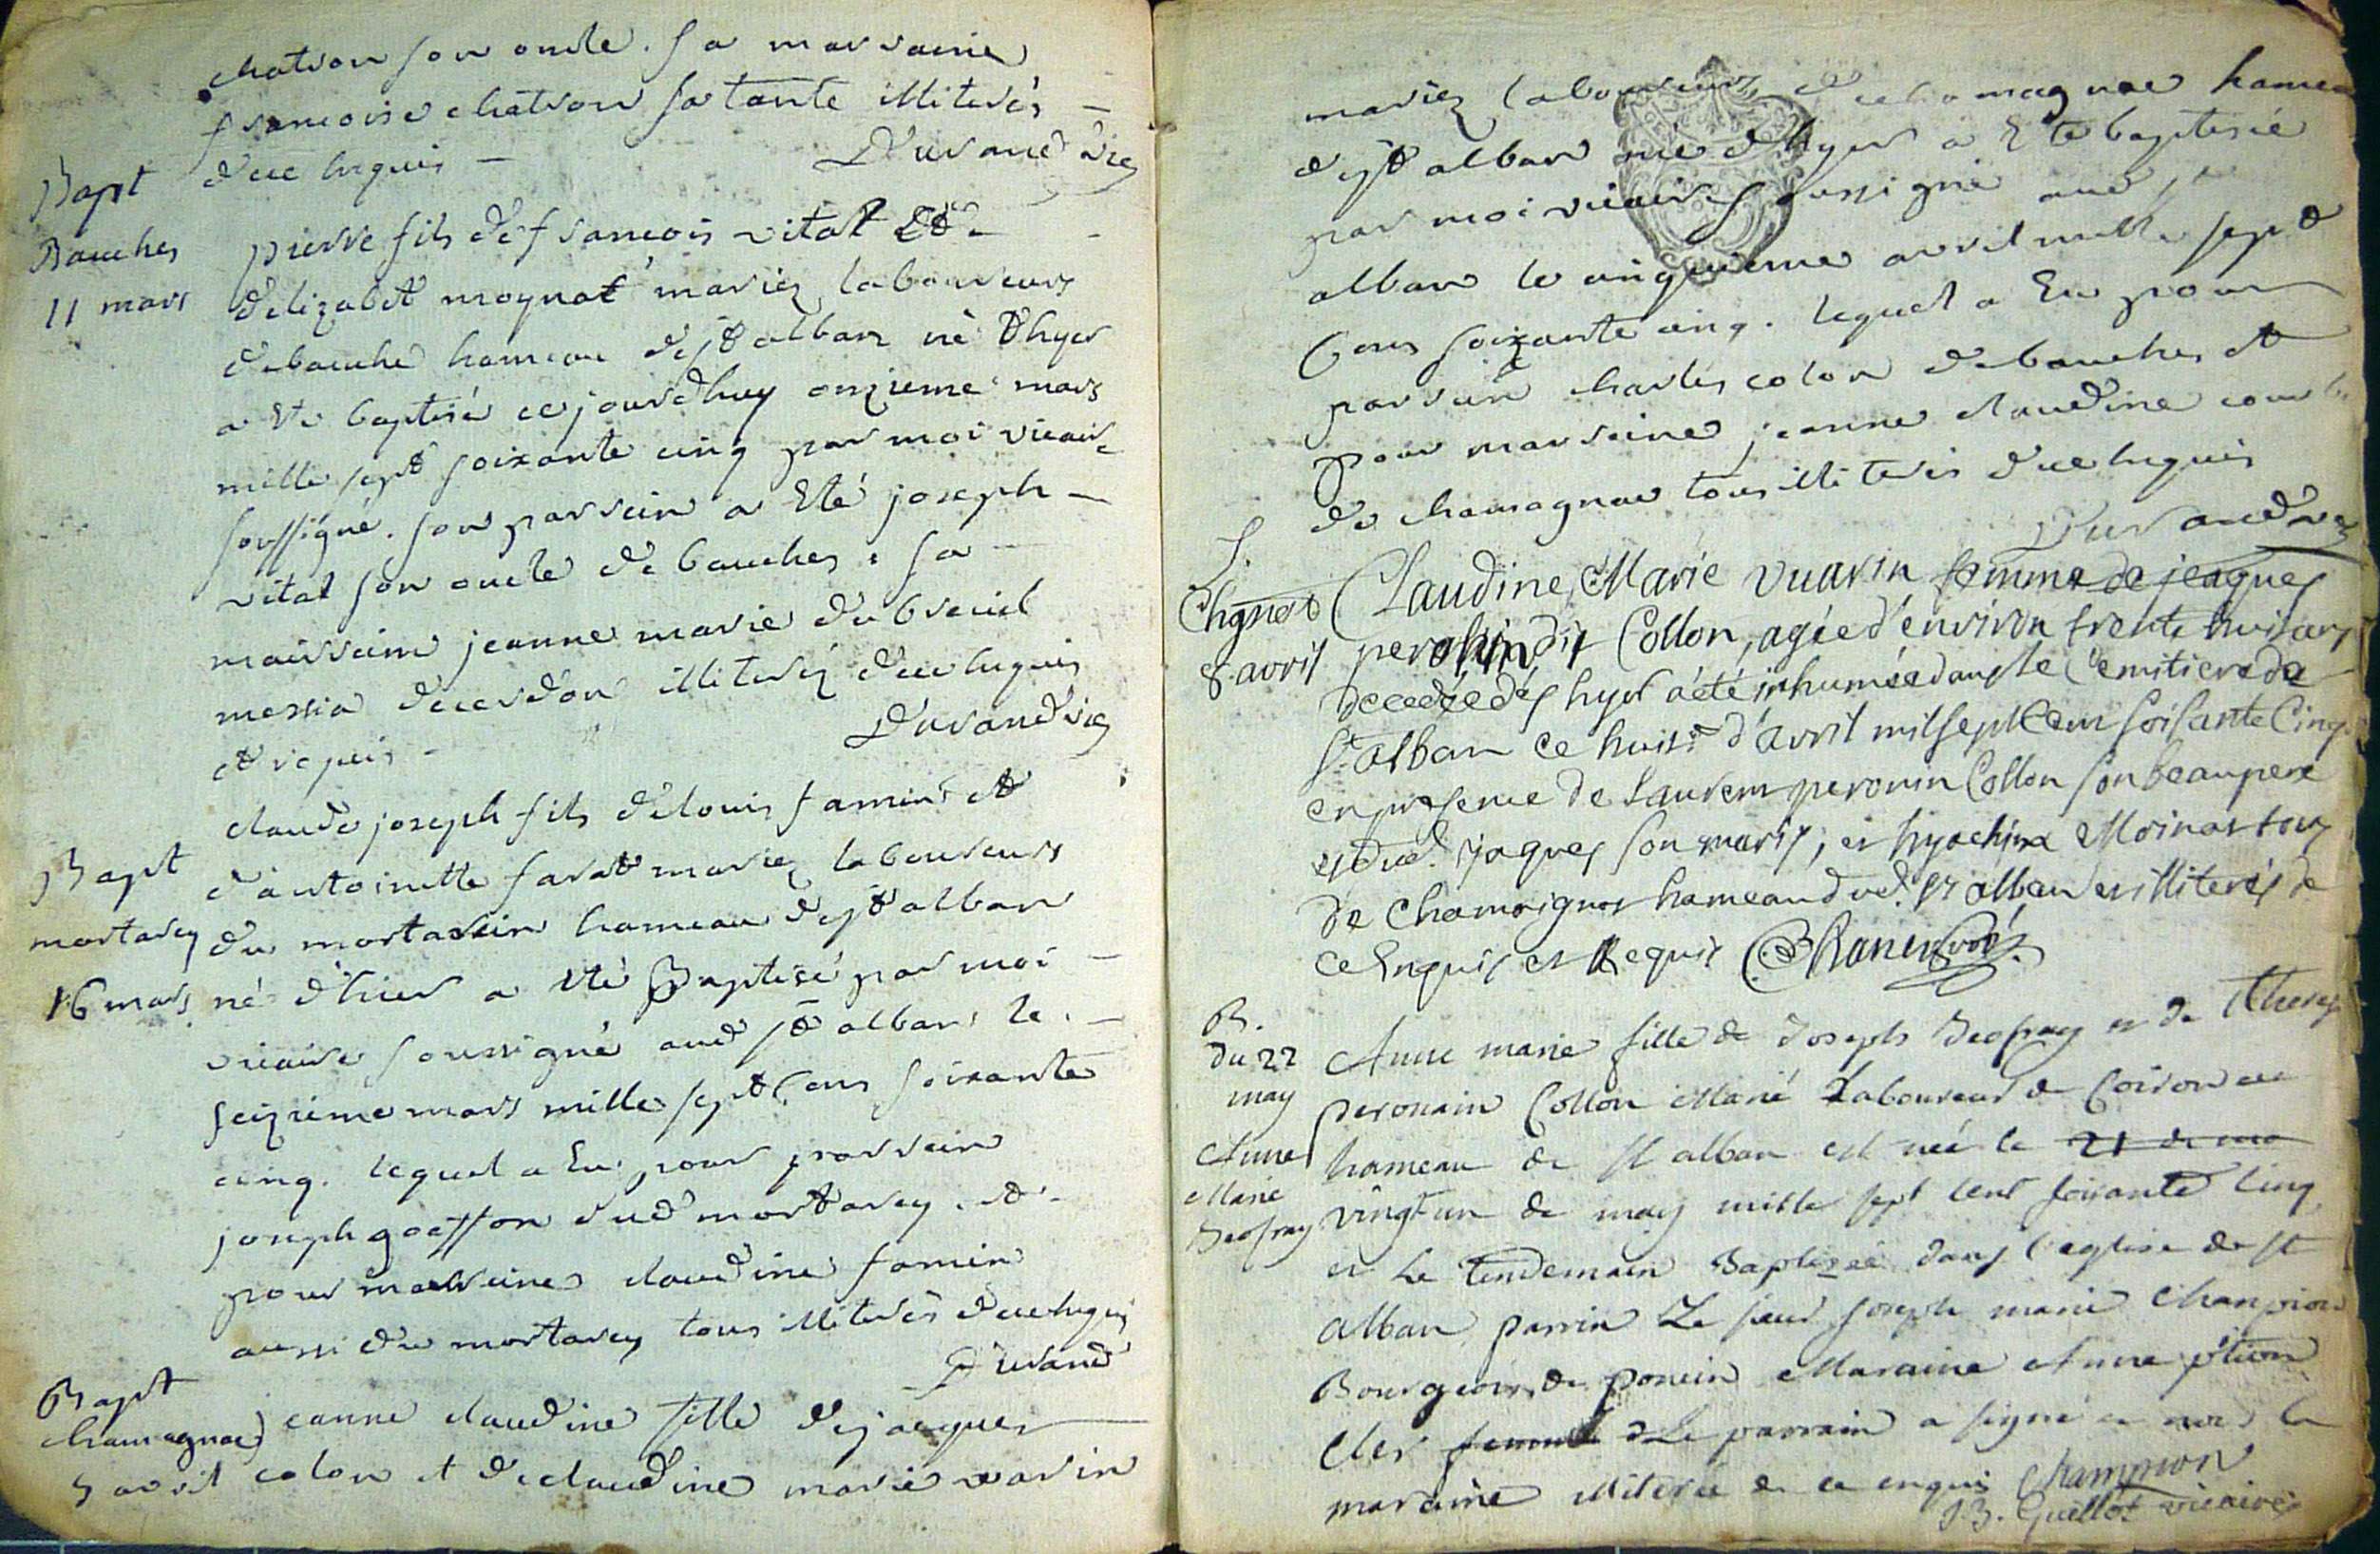 chatron son oncle. sa marraine
francoise chatron sa tante illiterés
de ce enquis Durand vic
Bapt
Bauches
11 mars
pierre fils de francois vital et
delizabet moynat mariez laboureurs
de bauche hameau de st alban né d'hyer
a été baptisé ce jourdhuy onzieme mars
mille sept soixante cinq par moi vicaire
soussigné. son parrein a Eté joseph
vital son oncle de bauches. sa
mairreine jeanne marie dubreuil
messia de cerdon illiterez de ce enquis
et requis Durand vic
Bapt
mortarey
16 mars
claude joseph fils de louis famin et
d'antoinette farat mariez laboureurs
du mortarein hameau de st alban
né d'hier a été Baptisé par moi
vicaire soussigné aud st alban le
seizieme mars mille sept cens soixante
cinq. lequel a Eu pour parrein
joseph goiffon dud mortarey. et
pour marreine claudine famin
aussi du mortarey tous illiterés de ce enquis
Durand
Bapt
chamagnac
5 avril
jeanne claudine fille de jacques
colon et de claudine marie varin
mariez laboureurs de chamagnac hameau
de st alban née d'hyer a Eté baptisée
par moi vicaire soussigné aud st
alban le cinquieme avril mille sept
Cens soixante cinq. lequel a Eu pour
parrein charles colon de bauches et
pour marreine jeanne claudine
de chamagnac tous illiterés de ce enquis
Durand vic
S.
8 avril
Claudine Marie Vuarin femme de jeaques
peronin dit Collon, agée d'environ trente huit ans
decedée dès hyer a été inhumée dans le Cemitiere de
St alban ce huit.e d'avril mil sept Cent soisante Cinq
en presence de Laurent peronin Collon son beaupere
et dud. jaques son marit, et hyachinte Moinat tous
de Chamoignat hameau dud. St alban et illiterés de
ce Enquis et Requis
B.
du 22
may
Anne
Marie
Deofray
Anne marie fille de Joseph Deofray et de Therese
peronnin Collon Marié Laboureur de Coiron
hameau de st alban est née le 21 de ma
vingt un de may mille sept cent soixante cinq
et Le lendemain Baptizée dans l'eglise de st
alban parrin Le sieur joseph marie Champion
Bourgeois de poncin Maraine Anne
Cler femme d Le parrain a signé et non la
maraine illiterée de ce enquis Champion
J.B. Guillot vicaire